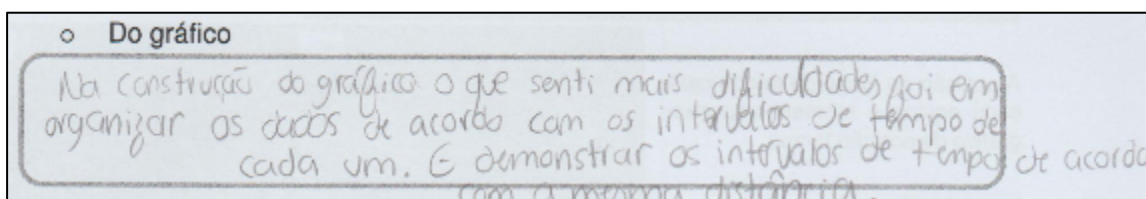 ○ Do gráfico
Na construção do gráfico o que senti mais dificuldades foi em
organizar os dados de acordo com os intervalos de tempo de
cada um. E demonstrar os intervalos de tempo de acordo
com a mesma distância.